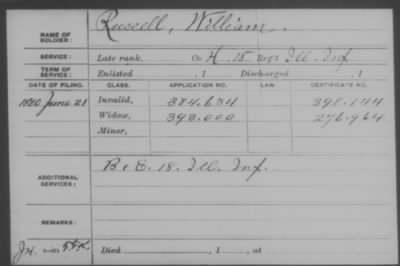 NAME OF SOLDIER: Russell, William.
SERVICE: Late rank, Co. H, 18 Reg't Ill. Inf
TERM OF SERVICE: Enlisted , 1 Discharged , 1
DATE OF FILING. CLASS. APPLICATION NO. LAW. CERTIFICATE NO.
1880 June 21 Invalid, 384.634 398.144
Widow, 393.000 276.964
Minor,
ADDITIONAL SERVICES: B & E. 18. Ill. Inf.
REMARKS:
Died , 1 , at